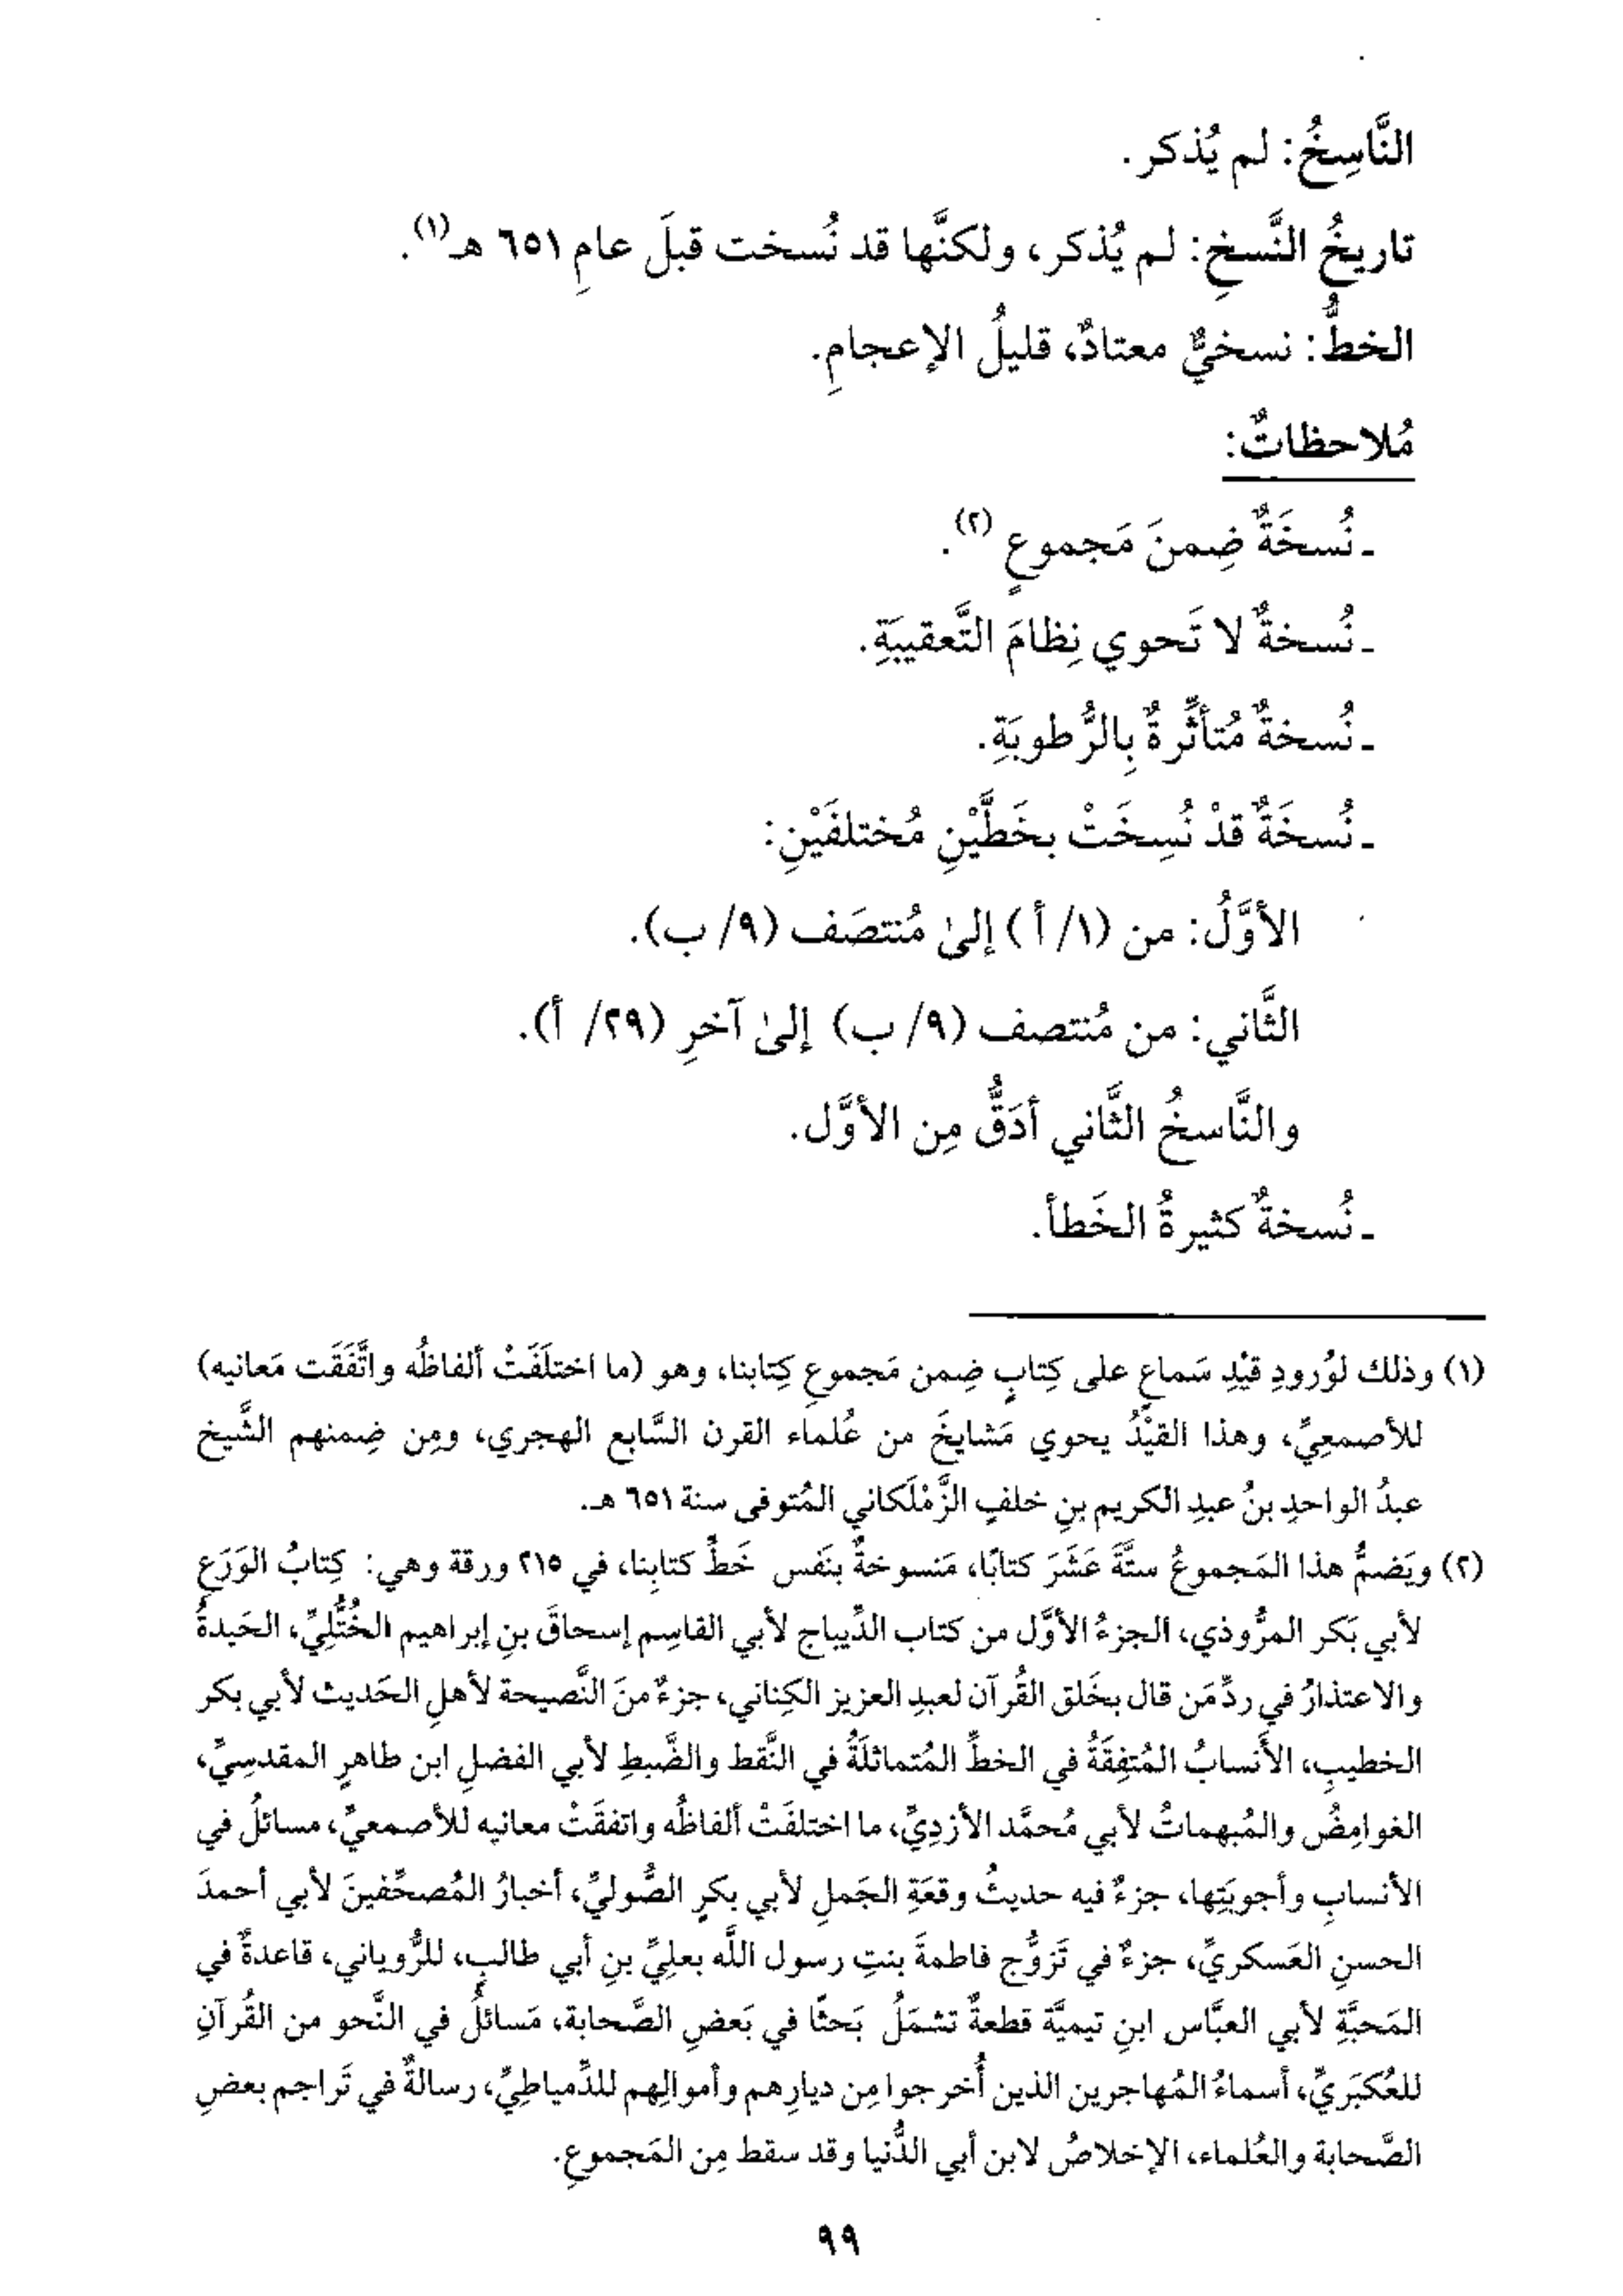 النَّاسِخُ: لم يُذكر.
تاريخُ النَّسخِ: لم يُذكر، ولكنَّها قد نُسخت قبلَ عامِ ٦٥١ هـ(١).
الخطُّ: نسخيٌّ معتادٌ، قليلُ الإعجامِ.
مُلاحظاتٌ:
ـ نُسخَةٌ ضِمنَ مَجموعٍ (٢).
ـ نُسخةٌ لا تَحوي نِظامَ التَّعقيبَةِ.
ـ نُسخةٌ مُتأثِّرةٌ بِالرُّطوبَةِ.
ـ نُسخَةٌ قدْ نُسِخَتْ بخَطَّيْنِ مُختلفَيْنِ:
الأوَّلُ: من (١/ أ) إلىٰ مُنتصَف (٩/ ب).
الثَّاني: من مُنتصف (٩/ ب) إلىٰ آخرِ (٢٩/ أ).
والنَّاسخُ الثَّاني أدَقُّ مِن الأوَّل.
ـ نُسخةٌ كثيرةُ الخَطأ.
(١) وذلك لوُرودِ قيْدِ سَماعٍ على كِتابٍ ضِمن مَجموعِ كِتابنا، وهو (ما اختلَفَتْ ألفاظُه واتَّفَقَت مَعانيه)
للأصمعِيِّ، وهذا القيْدُ يحوي مَشايخَ من عُلماء القرن السَّابع الهجري، ومِن ضِمنهم الشَّيخ
عبدُ الواحدِ بنُ عبدِ الكريم بنِ خلفٍ الزَّمْلَكاني المُتوفى سنة ٦٥١ هـ.
(٢) ويَضمُّ هذا المَجموعُ ستَّةَ عَشَرَ كتابًا، مَنسوخةٌ بنَفس خَطِّ كتابِنا، في ٢١٥ ورقة وهي: كِتابُ الوَرَعِ
لأبي بَكر المرُّوذي، الجزءُ الأوَّل من كتاب الدِّيباج لأبي القاسِم إسحاقَ بنِ إبراهيم الخُتُّلِيِّ، الحَيدةُ
والاعتذارُ في ردِّ مَن قال بخَلق القُرآن لعبدِ العزيز الكِناني، جزءٌ منَ النَّصيحة لأهلِ الحَديث لأبي بكر
الخطيبِ، الأَنسابُ المُتفِقَةُ في الخطِّ المُتماثلَةُ في النَّقط والضَّبطِ لأبي الفضلِ ابن طاهرٍ المقدسِيِّ،
الغوامِضُ والمُبهماتُ لأبي مُحمَّد الأزدِيِّ، ما اختلفَتْ ألفاظُه واتفقَتْ معانيه للأصمعيِّ، مسائلُ في
الأنسابِ وأجوبَتِها، جزءٌ فيه حديثُ وقعَةِ الجَملِ لأبي بكرٍ الصُّوليِّ، أخبارُ المُصحِّفينَ لأبي أحمدَ
الحسنِ العَسكريِّ، جزءٌ في تَزوُّج فاطمةَ بنتِ رسول اللَّه بعلِيِّ بنِ أبي طالبٍ، للرُّوياني، قاعدةٌ في
المَحبَّةِ لأبي العبَّاس ابنِ تيميَّة قطعةٌ تشمَلُ بَحثًا في بَعضِ الصَّحابة، مَسائلُ في النَّحو من القُرآنِ
للعُكبَريِّ، أسماءُ المُهاجرين الذين أُخرجوا مِن ديارِهم وأموالِهم للدِّمياطِيِّ، رسالةٌ في تَراجم بعضِ
الصَّحابة والعُلماء، الإخلاصُ لابن أبي الدُّنيا وقد سقط مِن المَجموعِ.
٩٩